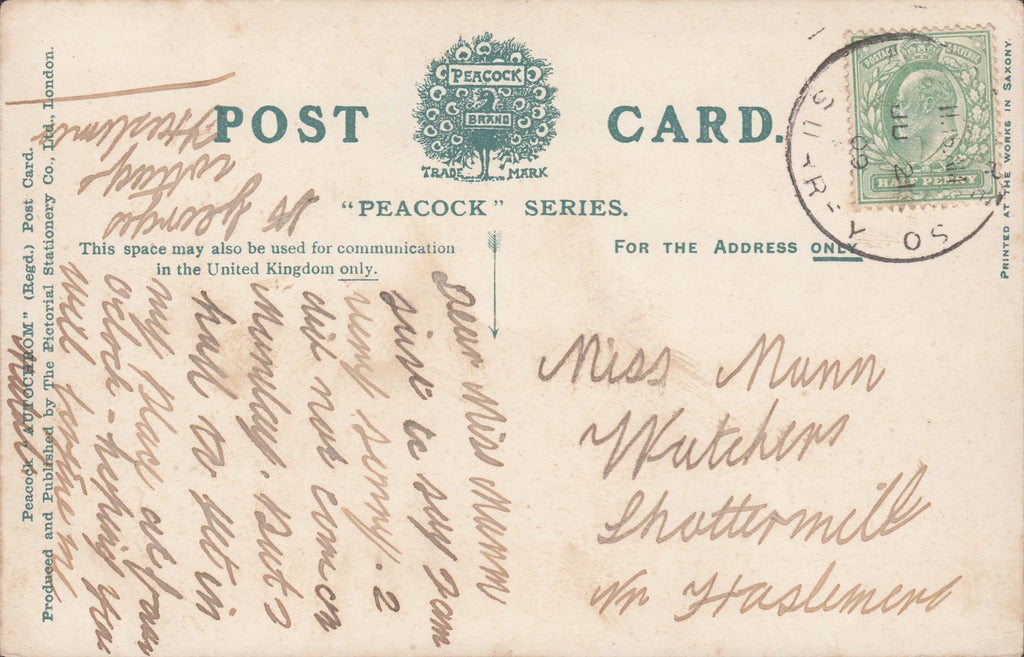 POST CARD.
PEACOCK
BRAND
TRADE MARK
"PEACOCK" SERIES.
This space may also be used for communication
in the United Kingdom only.
FOR THE ADDRESS ONLY
HALF PENNY
SURREY
JU
09
Peacock "AUTOCHROM" (Regd.) Post Card.
Produced and Published by The Pictorial Stationery Co., Ltd., London.
PRINTED AT THE WORKS IN SAXONY.
St Georges
cottage
Haslemere
Dear Miss Munn
Just to say I am
very sorry. I
did not come on
Monday. But I
had to sit in
my place at four
oclock - hoping you
will
Miss Munn
Watchers
Shottermill
Nr Haslemere